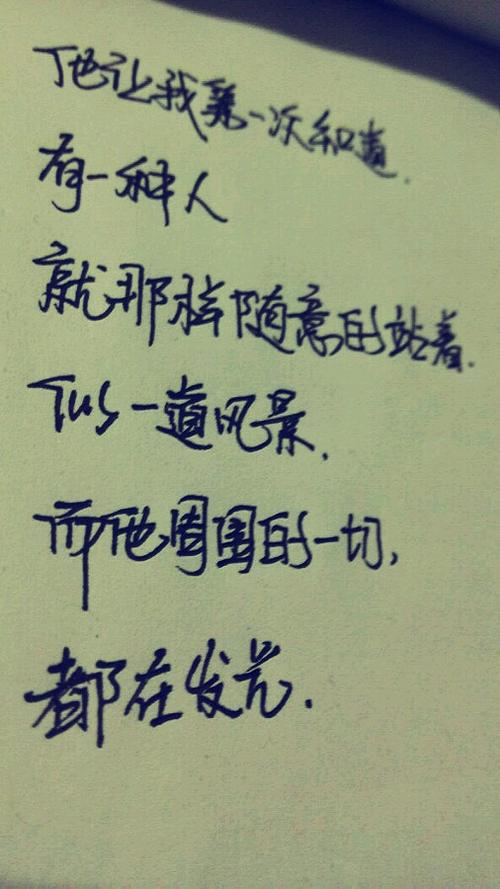 他让我第一次知道.
有一种人
就那样随意的站着.
似一道风景.
而他周围的一切,
都在发光.